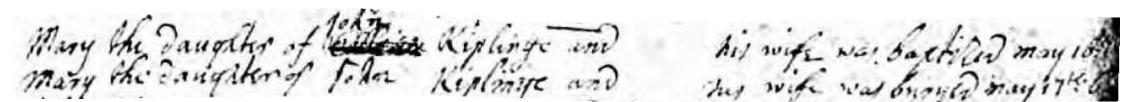 John
Mary the daughter of Kiplinge and his wife was baptized may 16th
Mary the daughter of John Kiplinge and his wife was buryed may 17th